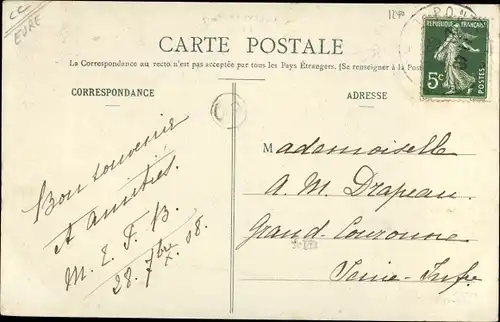 CC
EURE
CARTE POSTALE
La Correspondance au recto n'est pas acceptée par tous les Pays Étrangers. (Se renseigner à la Post
CORRESPONDANCE
ADRESSE
REPUBLIQUE FRANÇAISE
5c
POSTES
Bon souvenir
& Amitiés.
M. E. F. B.
28. 7bre 08.
Mademoiselle
A. M. Drapeau.
Grand-Couronne
Seine-Infre